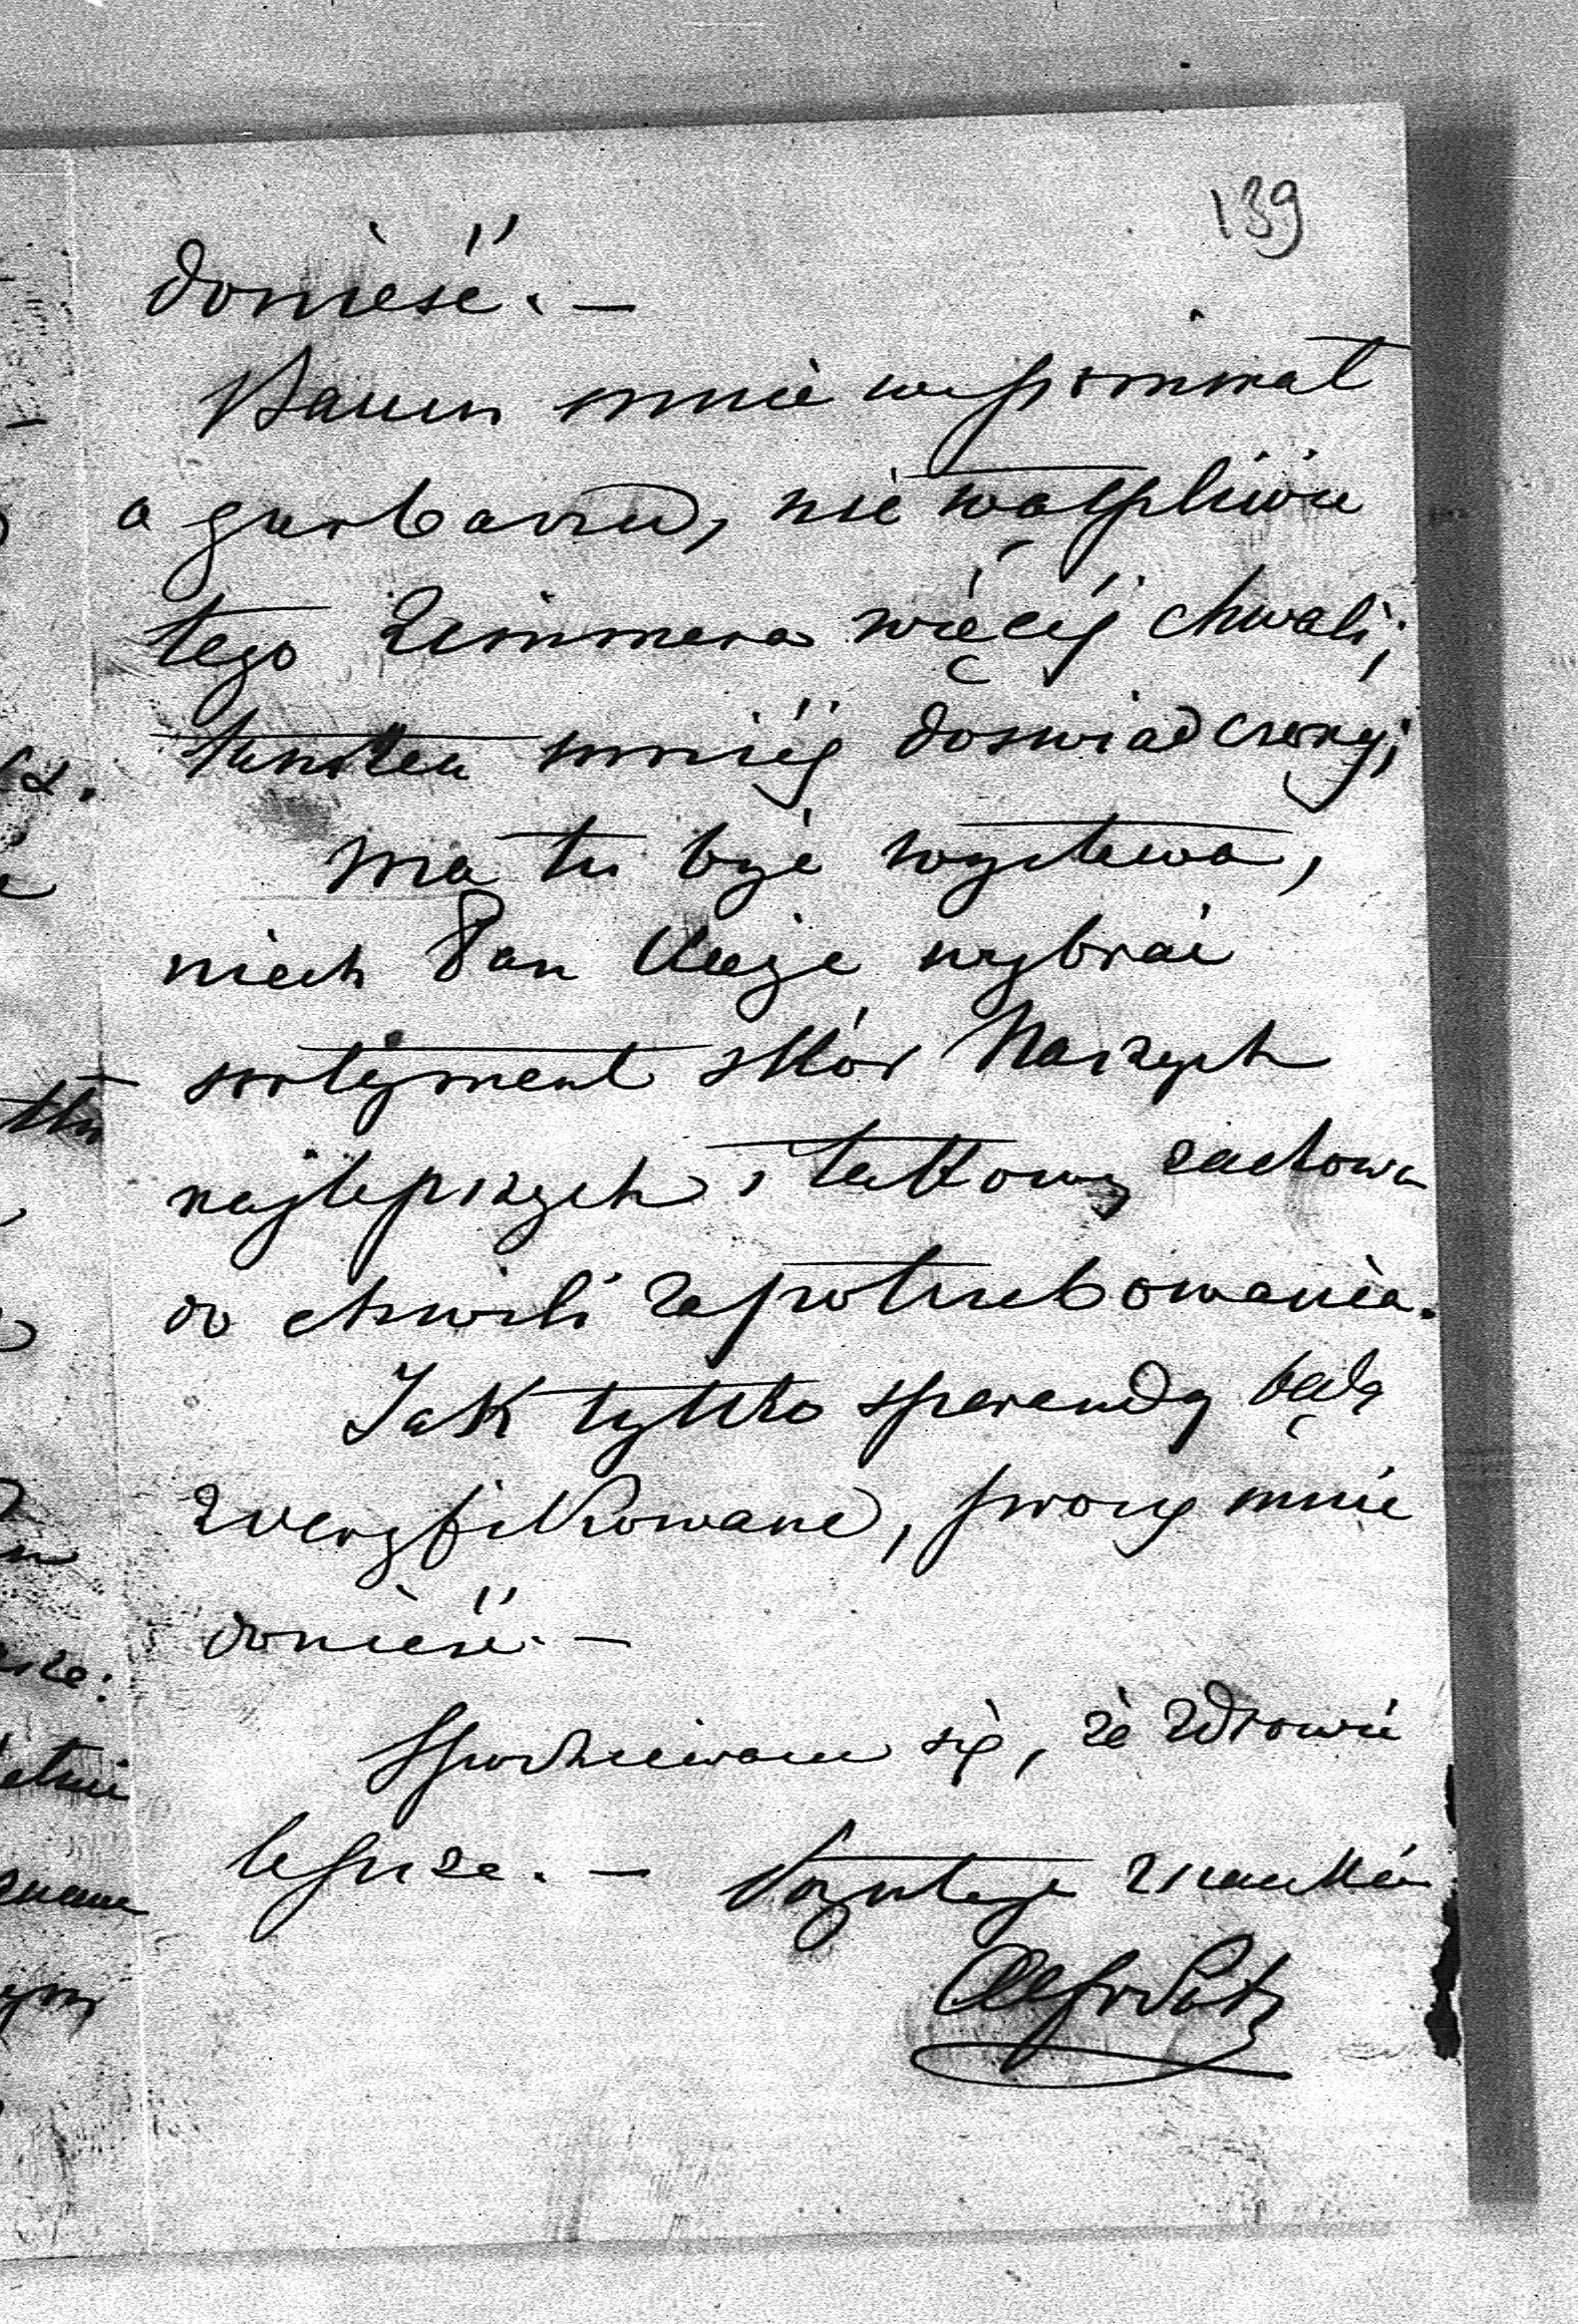 139
donieść. —
Baum mnie wspominał
o garbarzu, nie wątpliwie
tego Zimmera więcéj chwali,
mniéj doswiadczony;
Ma tu być wystawa,
niech Pan każe wybrać
sortyment skór Naszych
najlepszych i takowy zachowa
do chwili zapotrzebowania.
Jak tylko sperandy będą
zweryfikowane, proszę mnie
donieść. —
Spodziewam się, że zdrowie
lepsze. —
Alfr Pot